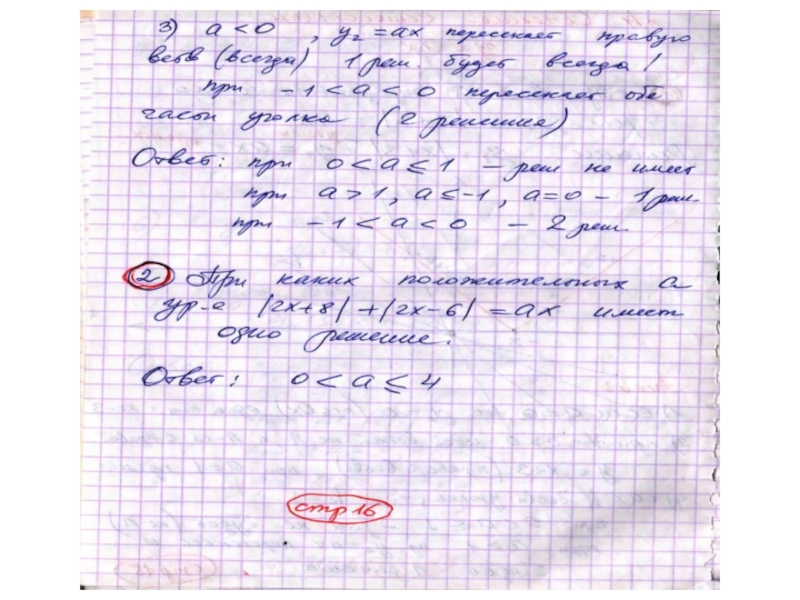 3) a < 0 , y₂ = ax пересекает правую
ветв (всегда) 1 реш. будет всегда!
при -1 < a < 0 пересекает обе
части уголка (2 решения)
Ответ: при 0 < a ≤ 1 – реш не имеет
при a > 1, a ≤ -1, a = 0 – 1 реш.
при -1 < a < 0 – 2 реш.
2 При каких положительных a
ур-е |2x+8| + |2x-6| = ax имеет
одно решение.
Ответ: 0 < a ≤ 4
стр 16